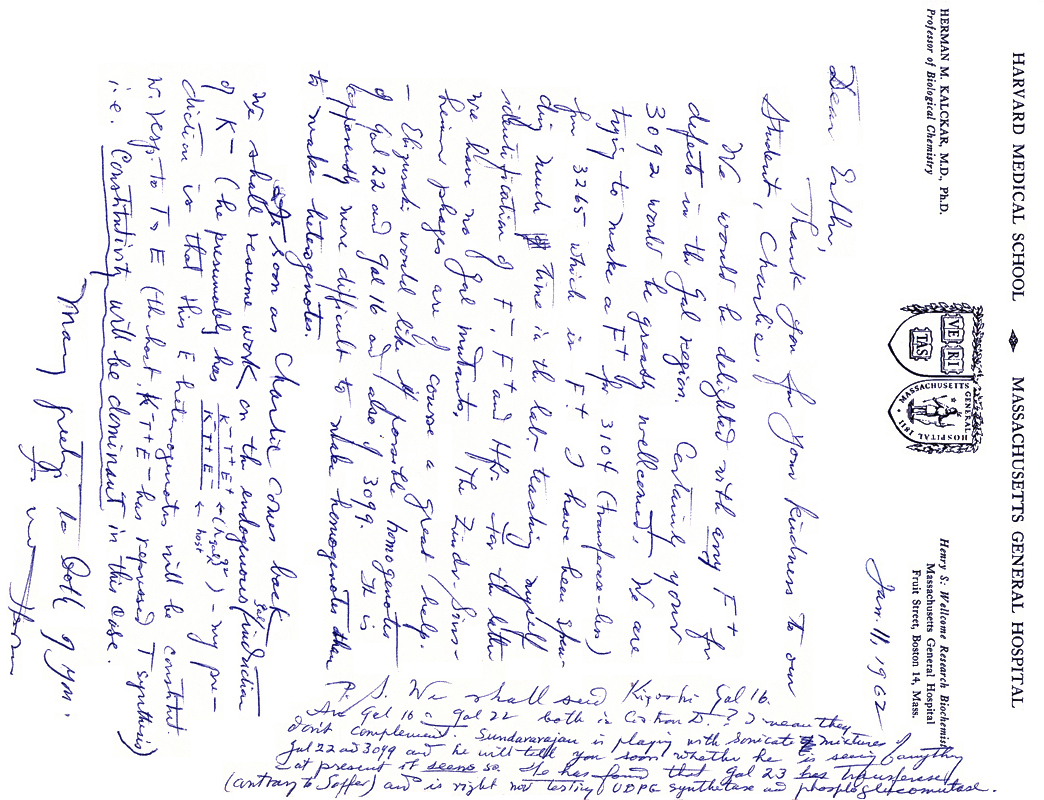 HARVARD MEDICAL SCHOOL ◆ MASSACHUSETTS GENERAL HOSPITAL
HERMAN M. KALCKAR, M.D., Ph.D.
Professor of Biological Chemistry
VE RI
TAS
MASSACHUSETTS GENERAL HOSPITAL 1811
Henry S. Wellcome Research Biochemist
Massachusetts General Hospital
Fruit Street, Boston 14, Mass.
Jan. 11, 1962
Dear Esther,
Thank you for your kindness to our
student, Charlie.
We would be delighted with any F+ for
defects in the Gal region. Certainly your
3092 would be greatly wellcomed, We are
trying to make a F+ for 3104 (transferase-less)
from 3265 which is F+. I have been spen-
ding much time in the lab. teaching myself
identification of F-, F+ and Hfr. For the latter
we have no gal mutants. The Zinder, Sins-
heimer phages are of course a great help.
- Elizguski would like if possible homogenotes
of Gal 22 and Gal 16 and also of 3099. It is
apparently more difficult to make homogenotes than
to make heterogenotes.
As soon as Charlie comes back
we shall resume work on the endogenous gal induction
of K- (he presumably has K- T+ E+ ← / K- T+ E- ← host) - my pre-
diction is that this E heterogenote will be constitut
w. resp. to T & E (the host, K-T+E- has repressed T synthesis)
i.e. Constitutivity will be dominant in this case.
Many greetings to both of you.
Herm
P.S. We shall send Kiyoshi Gal 16.
Are Gal 16 & gal 22 both in Cistron D.? I mean they
don't complement. Sundararajan is playing with sonicate mixtures of
Gal 22 and 3099 and he will tell you soon whether he is seeing anything
at present it seems so. He has found that Gal 23 has transferase
(contrary to Soffer) and is right now testing UDPG synthetase and phosphoglucomutase.